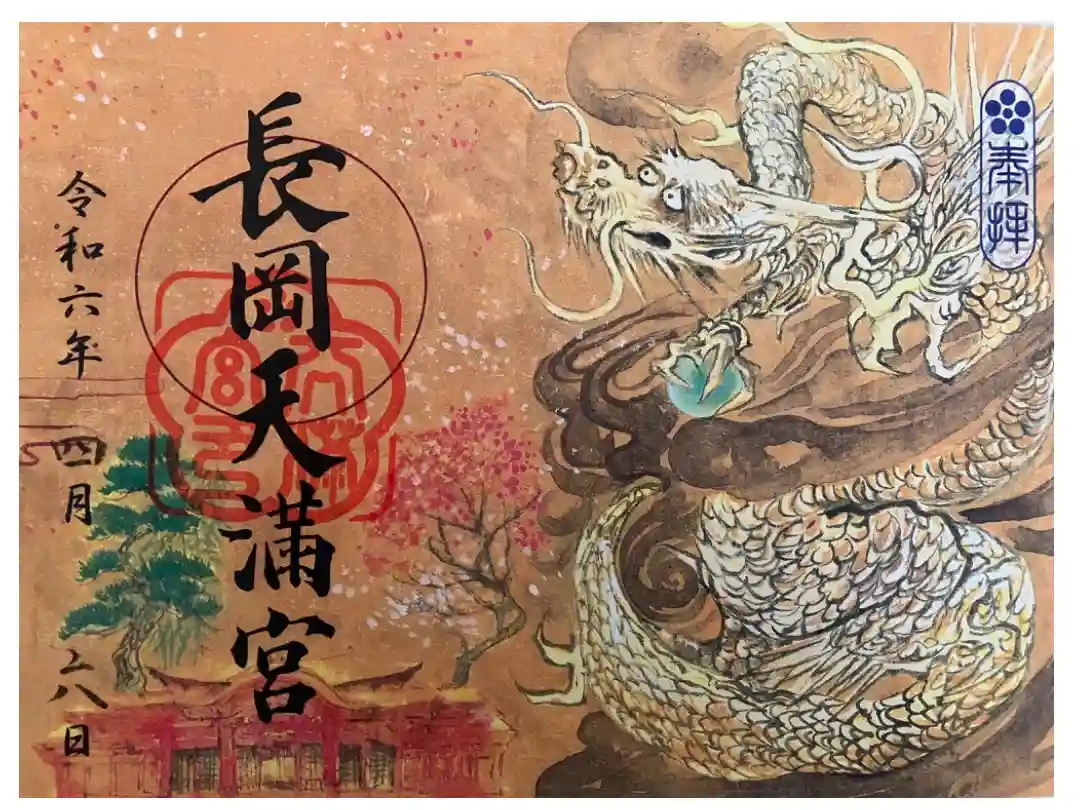 奉拝
長岡天満宮
令和六年 四月 二八日